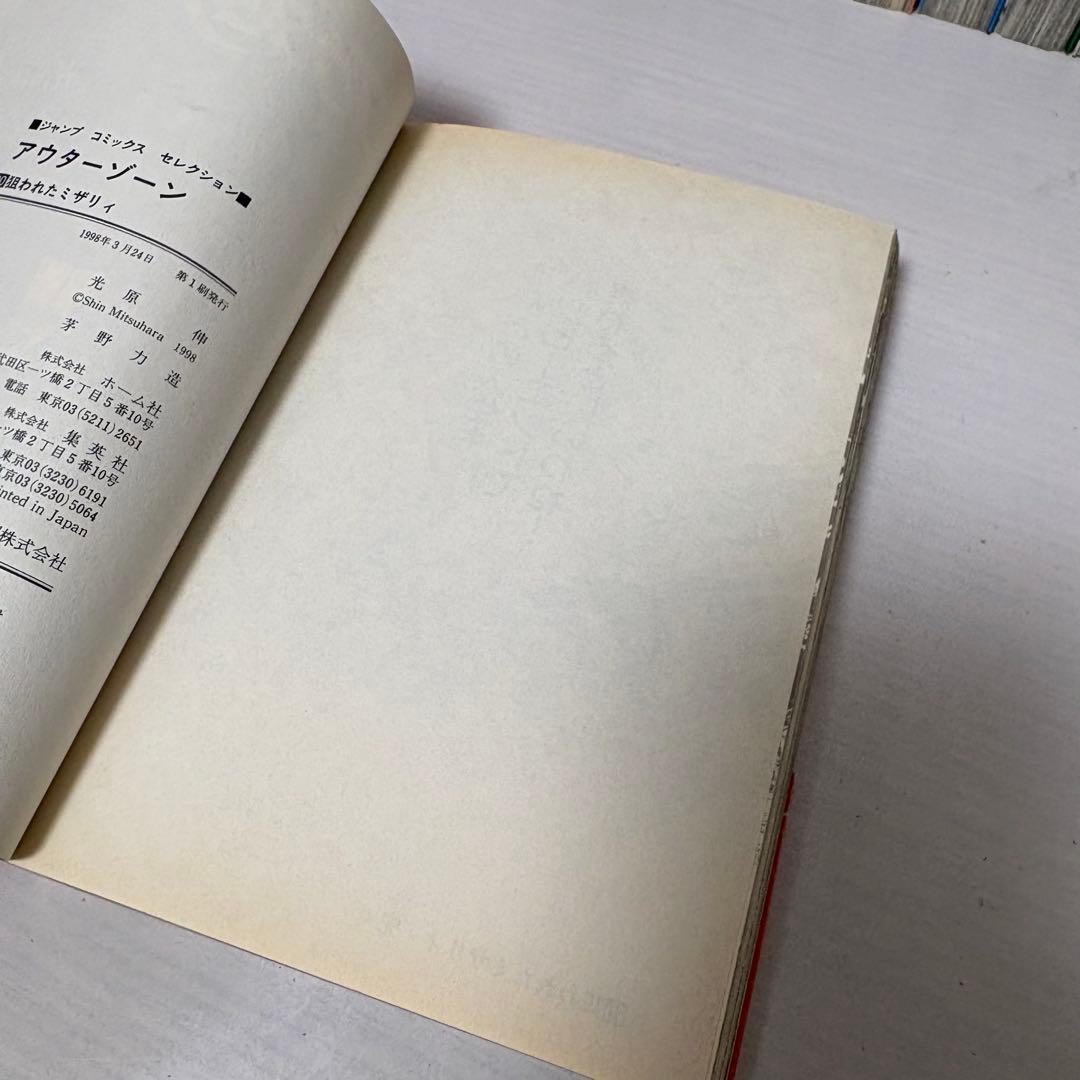 ■ジャンプ コミックス セレクション■
アウターゾーン
狙われたミザリィ
1998年3月24日 第1刷発行
光原 伸
©Shin Mitsuhara 1998
茅野力造
株式会社 ホーム社
田区一ツ橋2丁目5番10号
電話 東京03(5211)2651
株式会社 集英社
ツ橋2丁目5番10号
東京03(3230)6191
京03(3230)5064
inted in Japan
株式会社